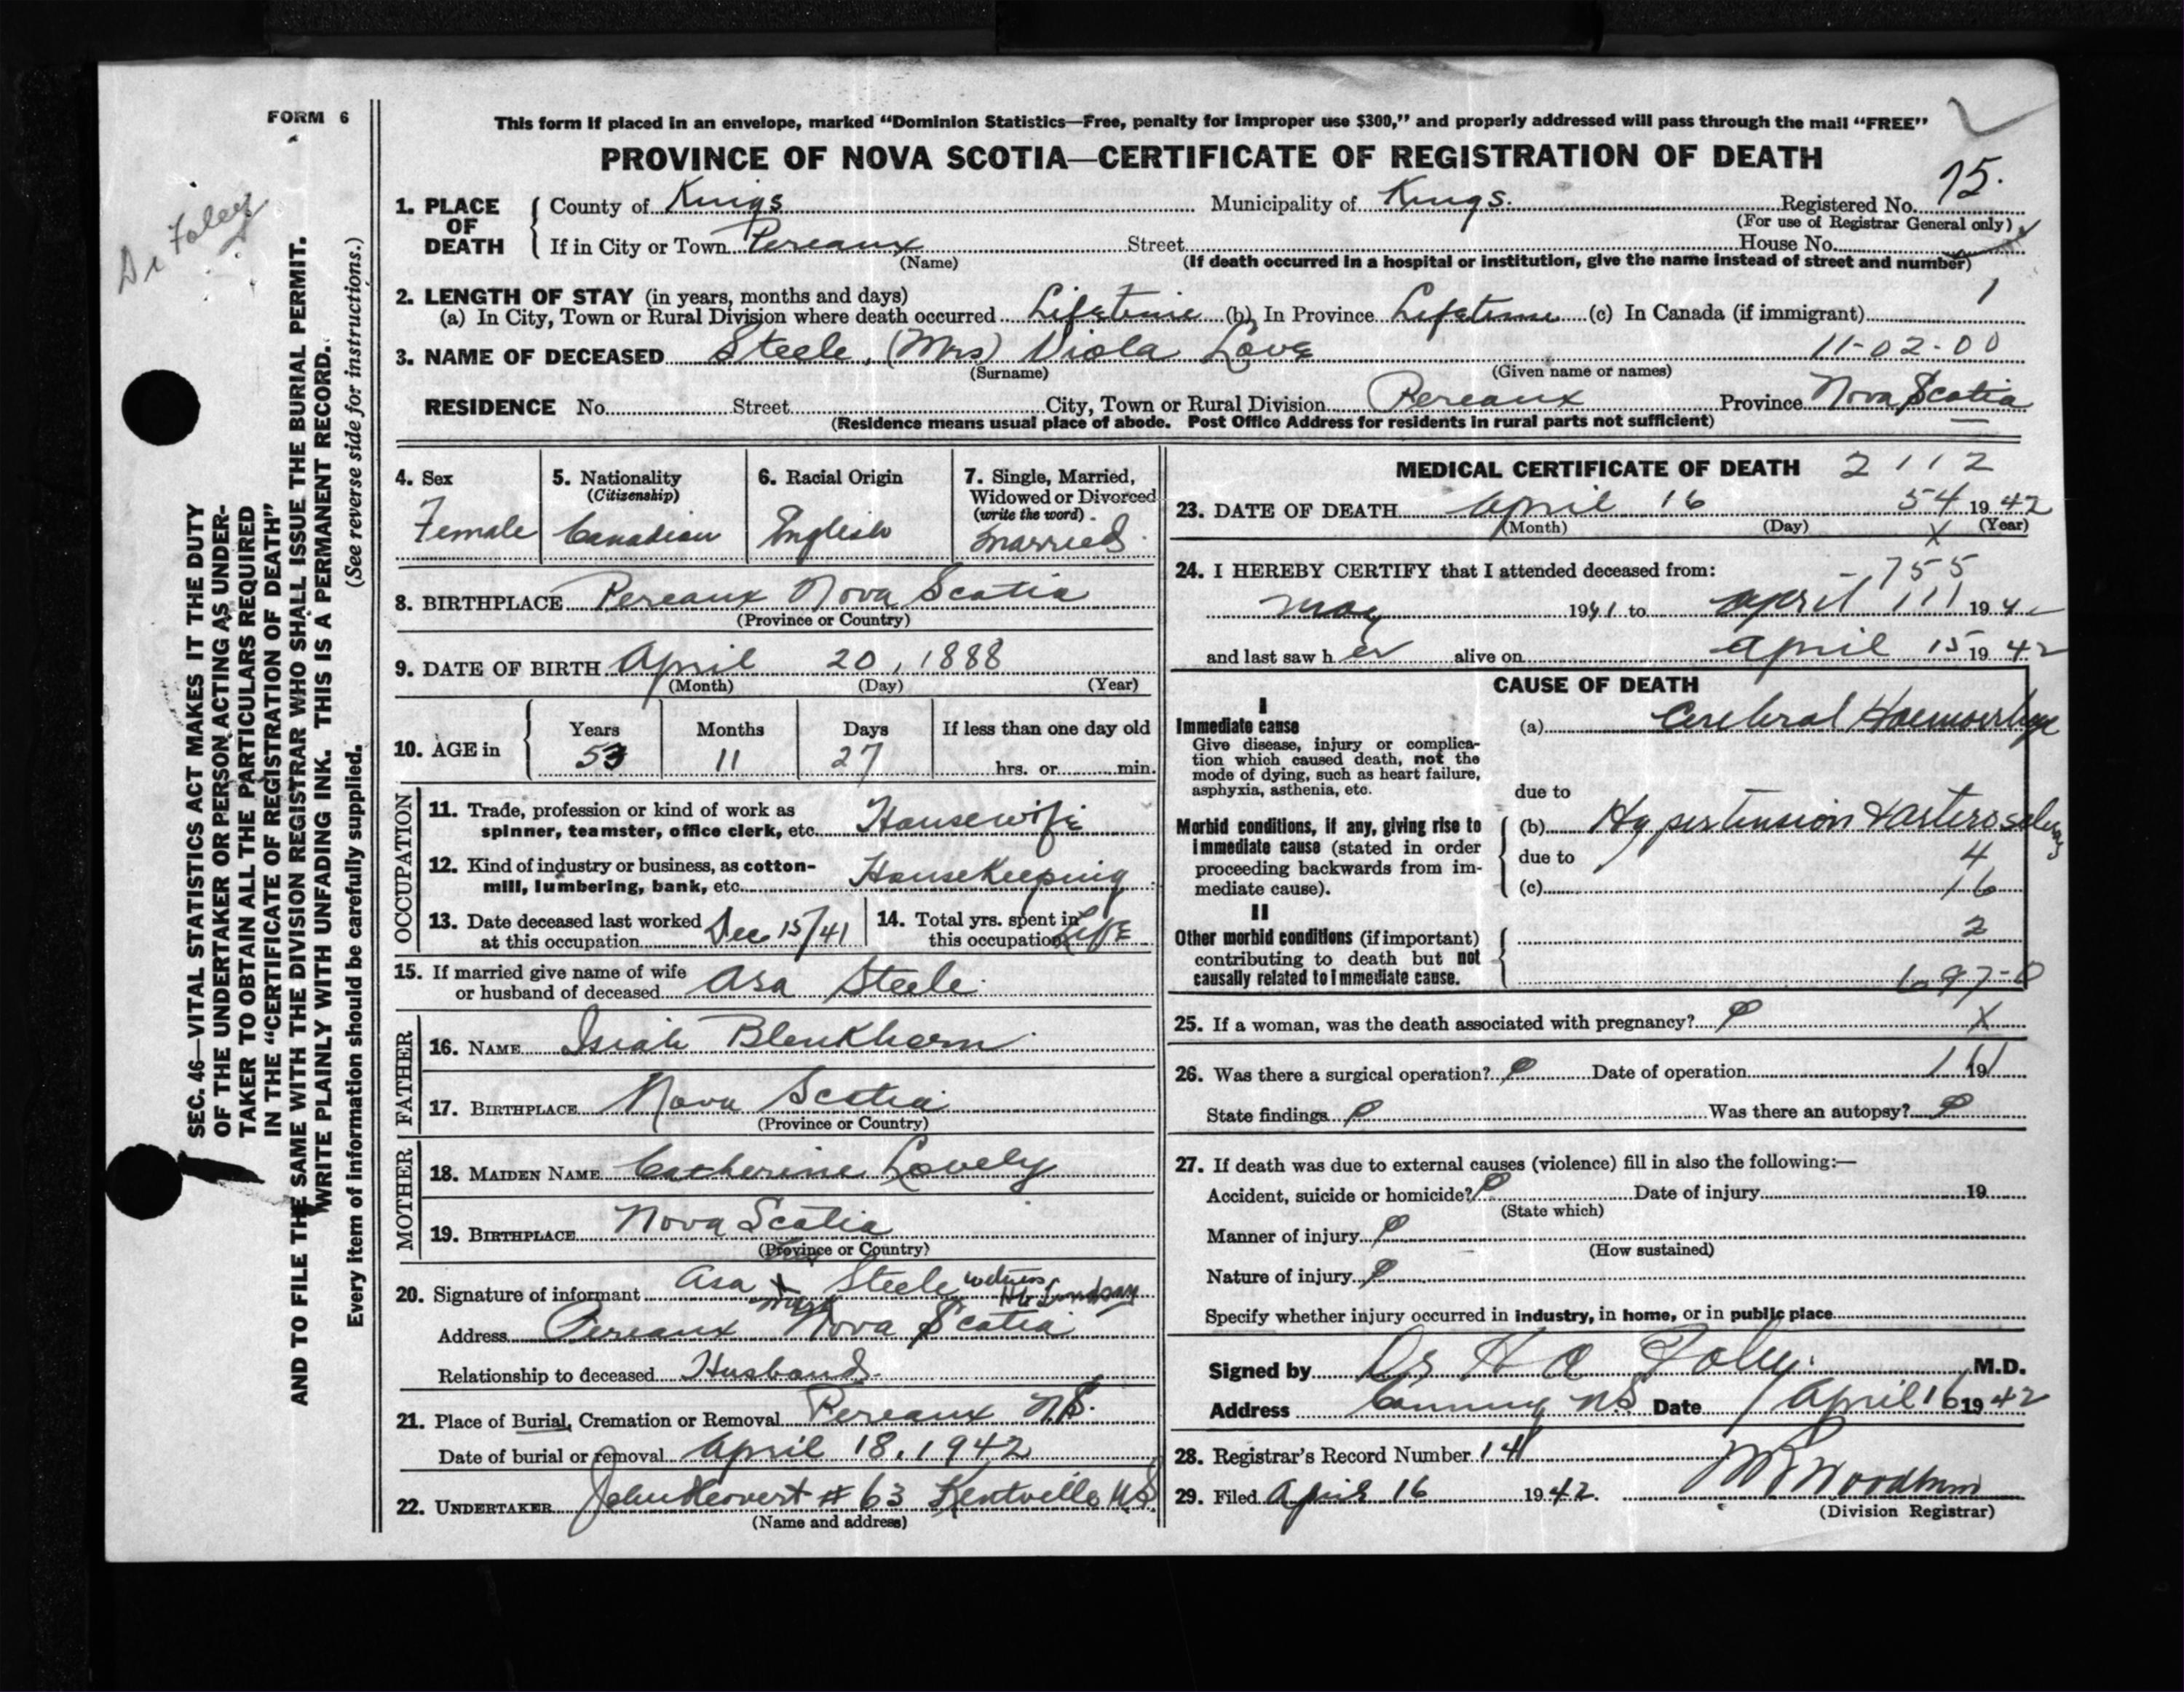 FORM 6
This form if placed in an envelope, marked "Dominion Statistics—Free, penalty for improper use $300," and properly addressed will pass through the mail "FREE"
PROVINCE OF NOVA SCOTIA—CERTIFICATE OF REGISTRATION OF DEATH
Dr Foley
SEC. 46—VITAL STATISTICS ACT MAKES IT THE DUTY
OF THE UNDERTAKER OR PERSON ACTING AS UNDER-
TAKER TO OBTAIN ALL THE PARTICULARS REQUIRED
IN THE "CERTIFICATE OF REGISTRATION OF DEATH"
AND TO FILE THE SAME WITH THE DIVISION REGISTRAR WHO SHALL ISSUE THE BURIAL PERMIT.
WRITE PLAINLY WITH UNFADING INK. THIS IS A PERMANENT RECORD.
Every item of information should be carefully supplied. (See reverse side for instructions.)
1. PLACE OF DEATH County of Kings Municipality of Kings. Registered No. 75.
(For use of Registrar General only)
If in City or Town Pereaux Street House No.
(Name) (If death occurred in a hospital or institution, give the name instead of street and number)
2. LENGTH OF STAY (in years, months and days) 1
(a) In City, Town or Rural Division where death occurred Lifetime (b) In Province Lifetime (c) In Canada (if immigrant)
3. NAME OF DECEASED Steele, (Mrs) Viola Love 11-02-00
(Surname) (Given name or names)
RESIDENCE No. Street City, Town or Rural Division Pereaux Province Nova Scotia
(Residence means usual place of abode. Post Office Address for residents in rural parts not sufficient)
4. Sex 5. Nationality 6. Racial Origin 7. Single, Married,
(Citizenship) Widowed or Divorced
(write the word)
Female Canadian English Married
8. BIRTHPLACE Pereaux Nova Scotia
(Province or Country)
9. DATE OF BIRTH April 20, 1888
(Month) (Day) (Year)
10. AGE in Years Months Days If less than one day old
53 11 27 hrs. or min.
OCCUPATION
11. Trade, profession or kind of work as
spinner, teamster, office clerk, etc. Housewife
12. Kind of industry or business, as cotton-
mill, lumbering, bank, etc. HouseKeeping
13. Date deceased last worked
at this occupation Dec 15/41
14. Total yrs. spent in
this occupation Life
15. If married give name of wife
or husband of deceased Asa Steele
FATHER
16. NAME Isiah Blenkhorn
17. BIRTHPLACE Nova Scotia
(Province or Country)
MOTHER
18. MAIDEN NAME Catherine Lovely
19. BIRTHPLACE Nova Scotia
(Province or Country)
20. Signature of informant Asa X Steele witness
mark
Address Pereaux Nova Scotia
Relationship to deceased Husband
21. Place of Burial, Cremation or Removal Pereaux N.S.
Date of burial or removal April 18, 1942
22. UNDERTAKER John # 63 Kentville NS
(Name and address)
MEDICAL CERTIFICATE OF DEATH 2112
23. DATE OF DEATH April 16 54 1942
(Month) (Day) X (Year)
24. I HEREBY CERTIFY that I attended deceased from: -755
May 1941 to April 111 194
and last saw her alive on April 15 1942
CAUSE OF DEATH
I
Immediate cause (a) Cerebral Haemorrhage
Give disease, injury or complica-
tion which caused death, not the
mode of dying, such as heart failure,
asphyxia, asthenia, etc.
due to
Morbid conditions, if any, giving rise to (b) Hypertension &
immediate cause (stated in order
proceeding backwards from im- due to 4
mediate cause). (c) 16
II
Other morbid conditions (if important) 2
contributing to death but not
causally related to immediate cause. 97-0
25. If a woman, was the death associated with pregnancy? X
26. Was there a surgical operation? Date of operation 19
State findings Was there an autopsy?
27. If death was due to external causes (violence) fill in also the following:—
Accident, suicide or homicide? Date of injury 19
(State which)
Manner of injury
(How sustained)
Nature of injury
Specify whether injury occurred in industry, in home, or in public place
Signed by Dr H A Foley. M.D.
Address Canning NS Date April 16 1942
28. Registrar's Record Number 141
29. Filed April 16 1942.
(Division Registrar)